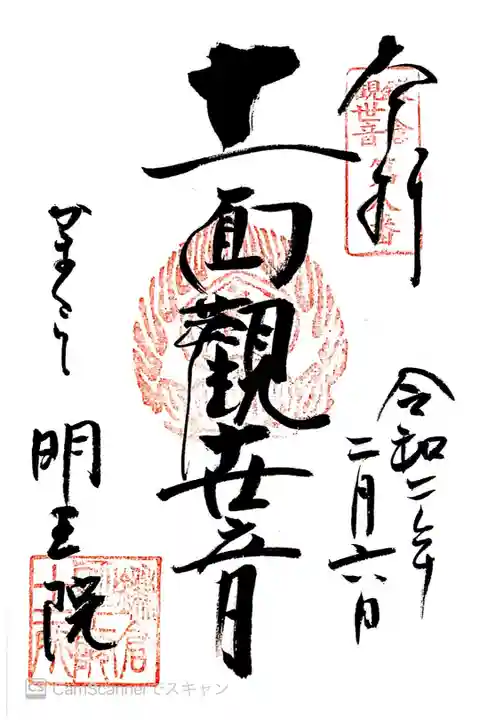 奉拝
鎌倉
観世音
第八番
令和二年
二月六日
十一面觀世音
かまくら
明王院
CS CamScannerでスキャン